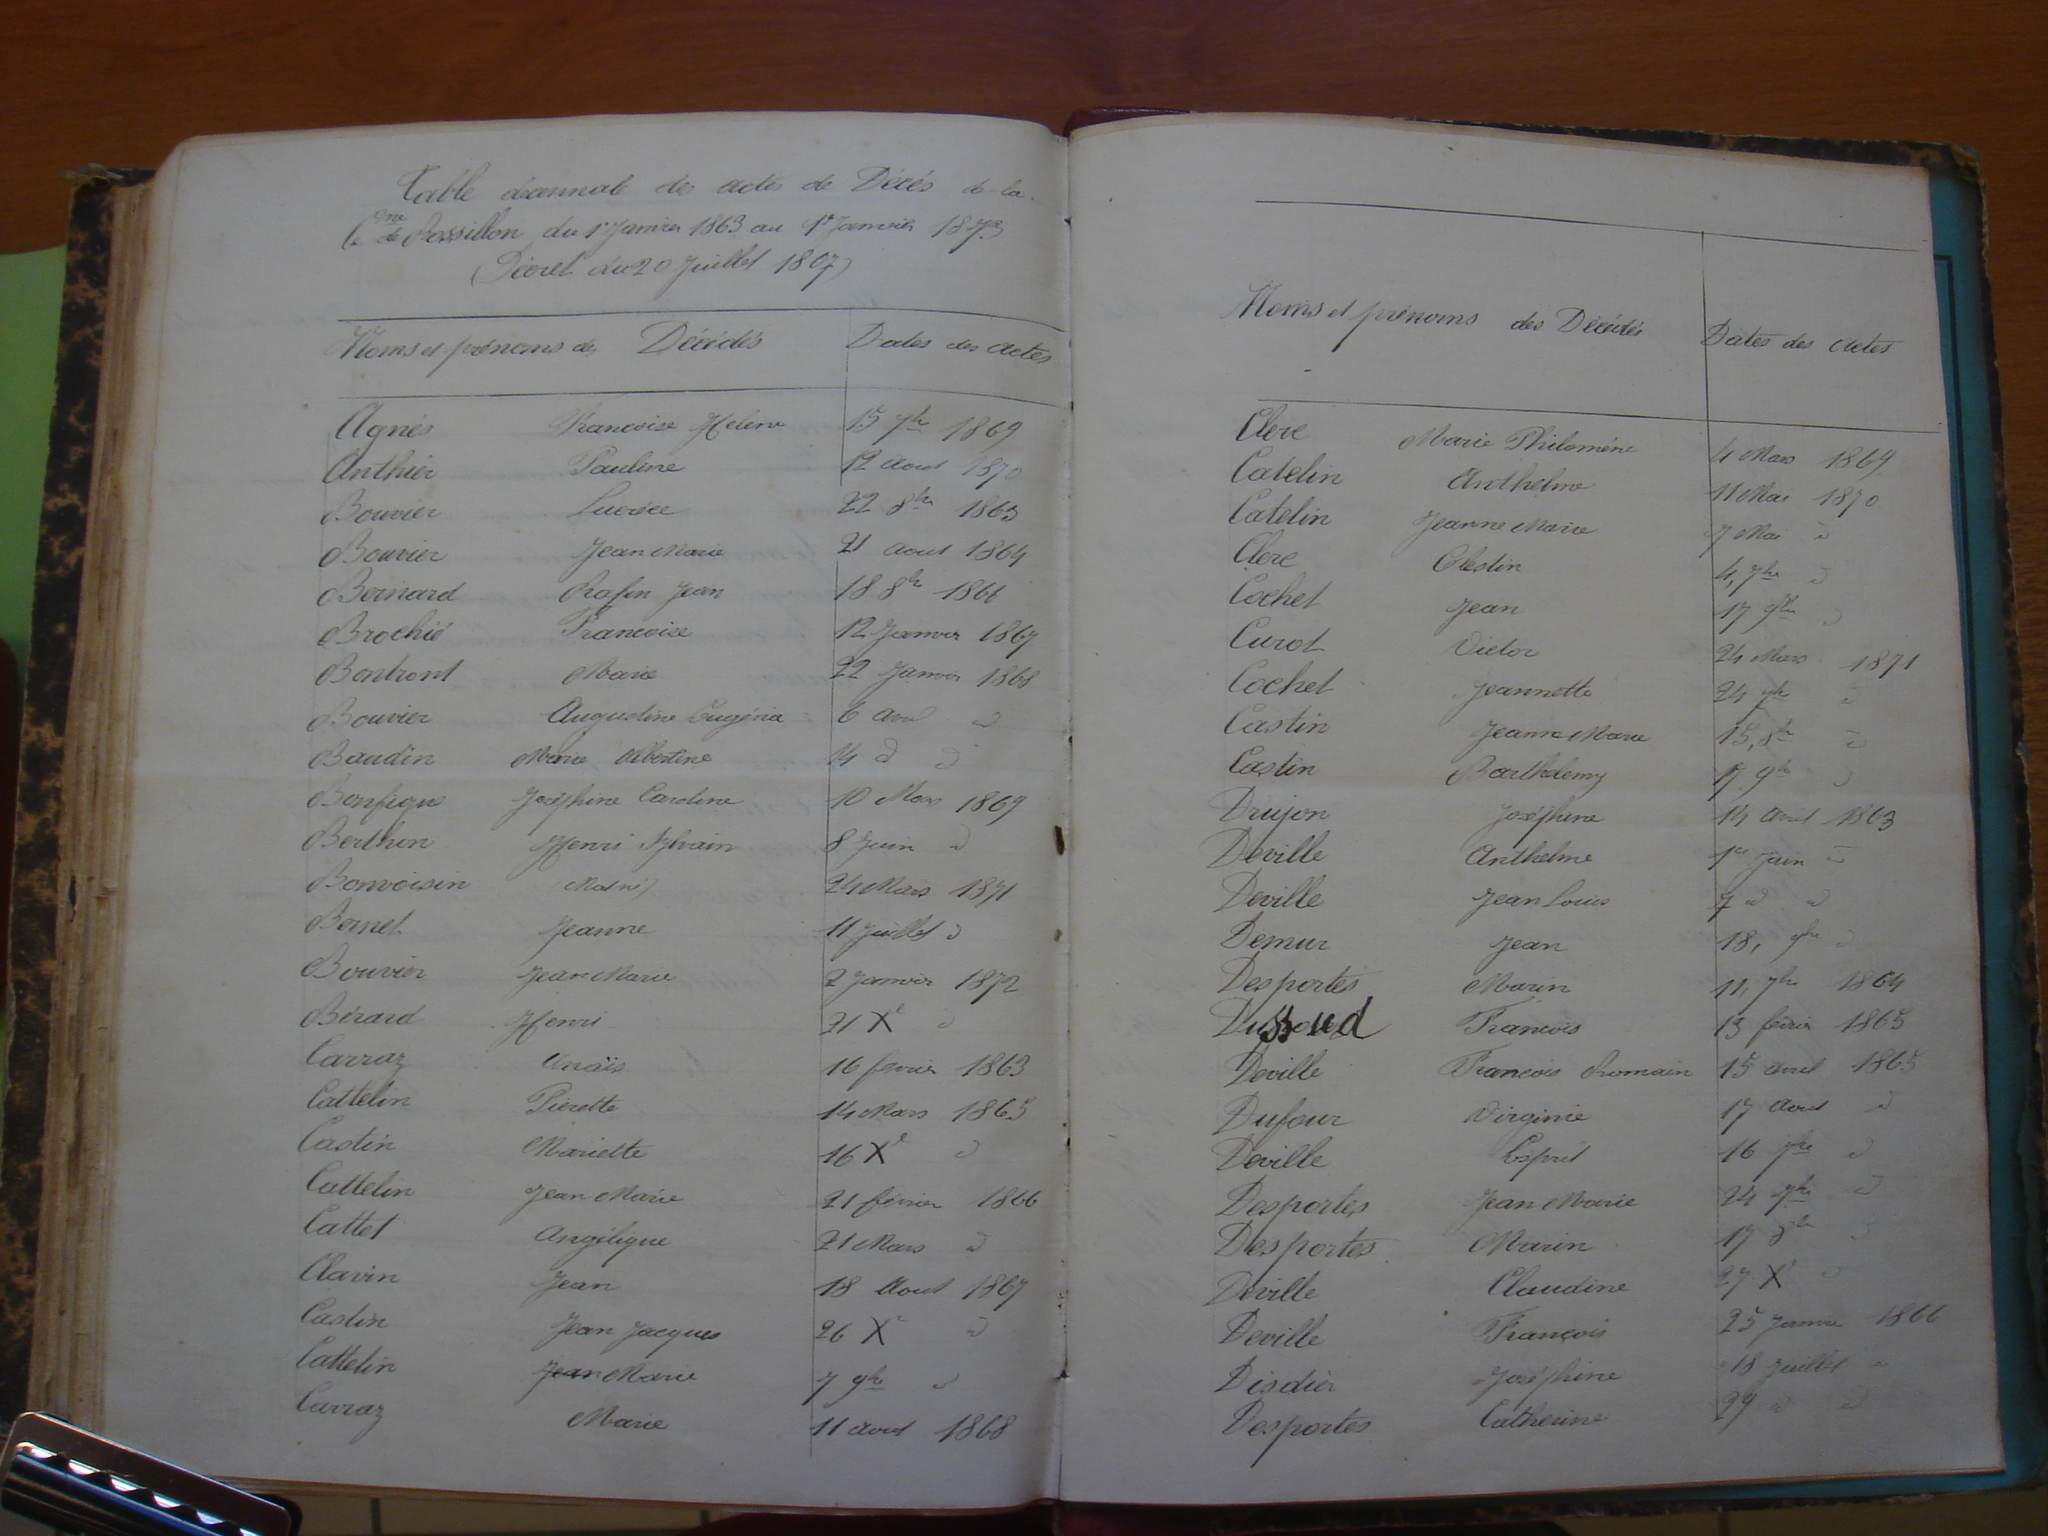 Table décennale des actes de Décès de la
Cne de Rossillon du 1r Janvier 1863 au 1r Janvier 1873
(Décret du 20 Juillet 1807)
Noms et prénoms des Décédés Dates des actes
Agnès Francoise Helene 15 7bre 1869
Anthier Pauline 12 Aout 1870
Bouvier Lucrèce 22 8bre 1863
Bouvier Jean Marie 21 Aout 1864
Bernard Jean 18 8bre 1866
Brochié Francoise 12 Janvier 1867
Bontront Marie 22 Janvier 1868
Bouvier Augustine Eugénie 6 avril d
Baudin Marie Albertine 14 d d
Josephine Caroline 10 Mars 1869
Berthon Henri Sylvain 8 Juin d
Bonvoisin 24 Mars 1871
Bernet Jeanne 11 Juillet d
Bouvier Jean Marie 2 Janvier 1872
Bérard Henri 21 Xe d
Carraz Anaïs 16 février 1863
Cattelin Pierette 14 Mars 1865
Castin Mariette 16 Xe d
Cattelin Jean Marie 21 février 1866
Cattet Angélique 21 Mars d
Clavin Jean 18 Aout 1867
Castin Jean Jacques 26 Xe d
Cattelin Jean Marie 7 9bre d
Carraz Marie 11 avril 1868
Noms et prénoms des Décédés Dates des actes
Clerc Marie Philomène 4 Mars 1869
Catelin Anthelme 11 Mai 1870
Catelin Jeanne Marie 7 Mai d
Clerc Célestin 4, 7bre d
Cochet Jean 17 9bre d
Curot Victor 24 Mars 1871
Cochet Jeannette 24 7bre d
Castin Jeanne Marie 15, 8bre d
Castin Barthelemy 17 9bre d
Drujon Joséphine 14 avril 1863
Deville Anthelme 1er Juin d
Deville Jean Louis 7 d d
Demur Jean 18, 9bre d
Desportes Marin 11, 7bre 1864
Dussoud Francois 13 février 1865
Deville Francois Romain 15 avril 1865
Dufour Virginie 17 Aout d
Deville Esprit 16 7bre d
Desportes Jean Marie 24 7bre d
Desportes Marin 17 8bre d
Deville Claudine 27 Xe d
Deville François 25 Janvier 1866
Disdier Joséphine 18 Juillet d
Desportes Catherine 29 d d